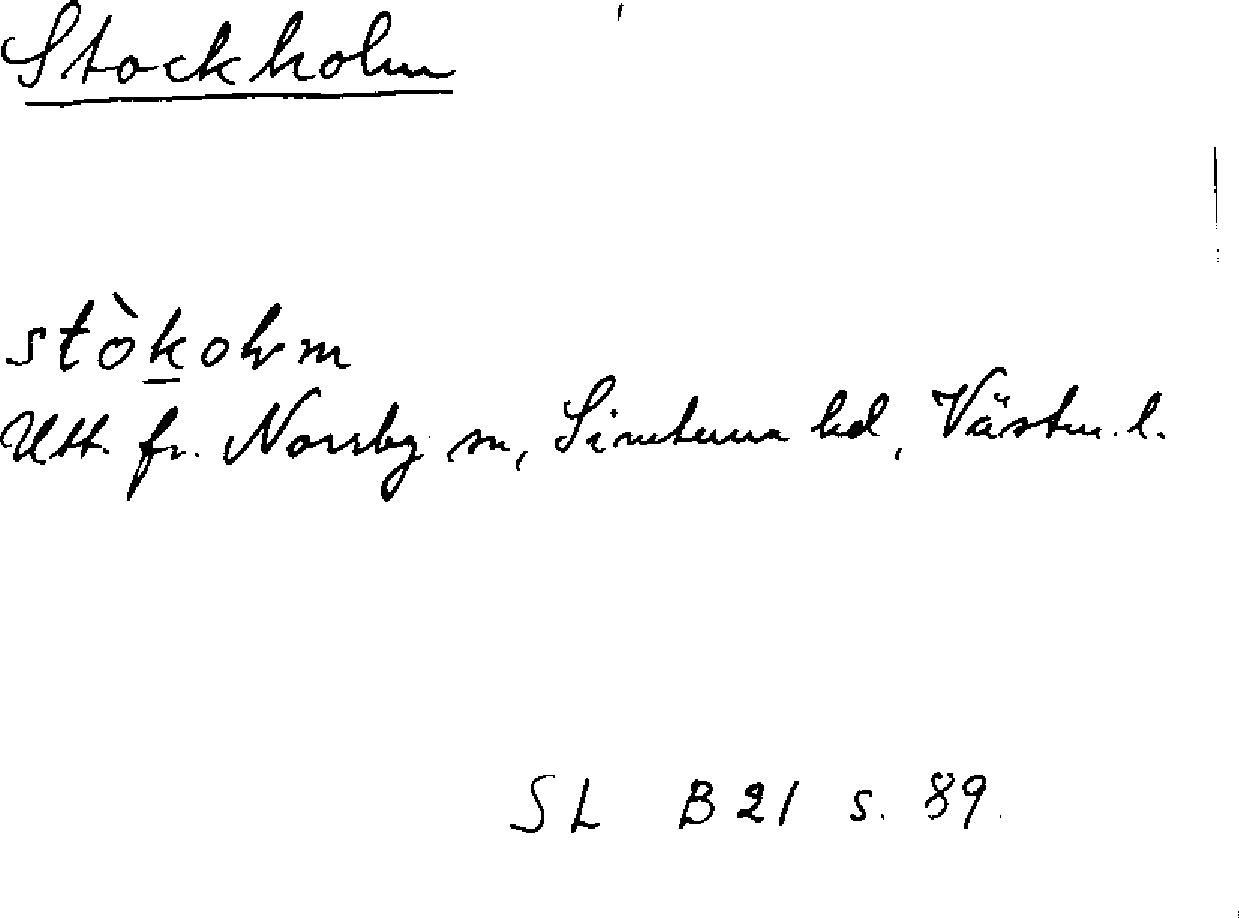 Stockholm
stòkolm
Utt. fr. Norrby sn, Simtuna hd, Västm. l.
SL B 21 s. 89.